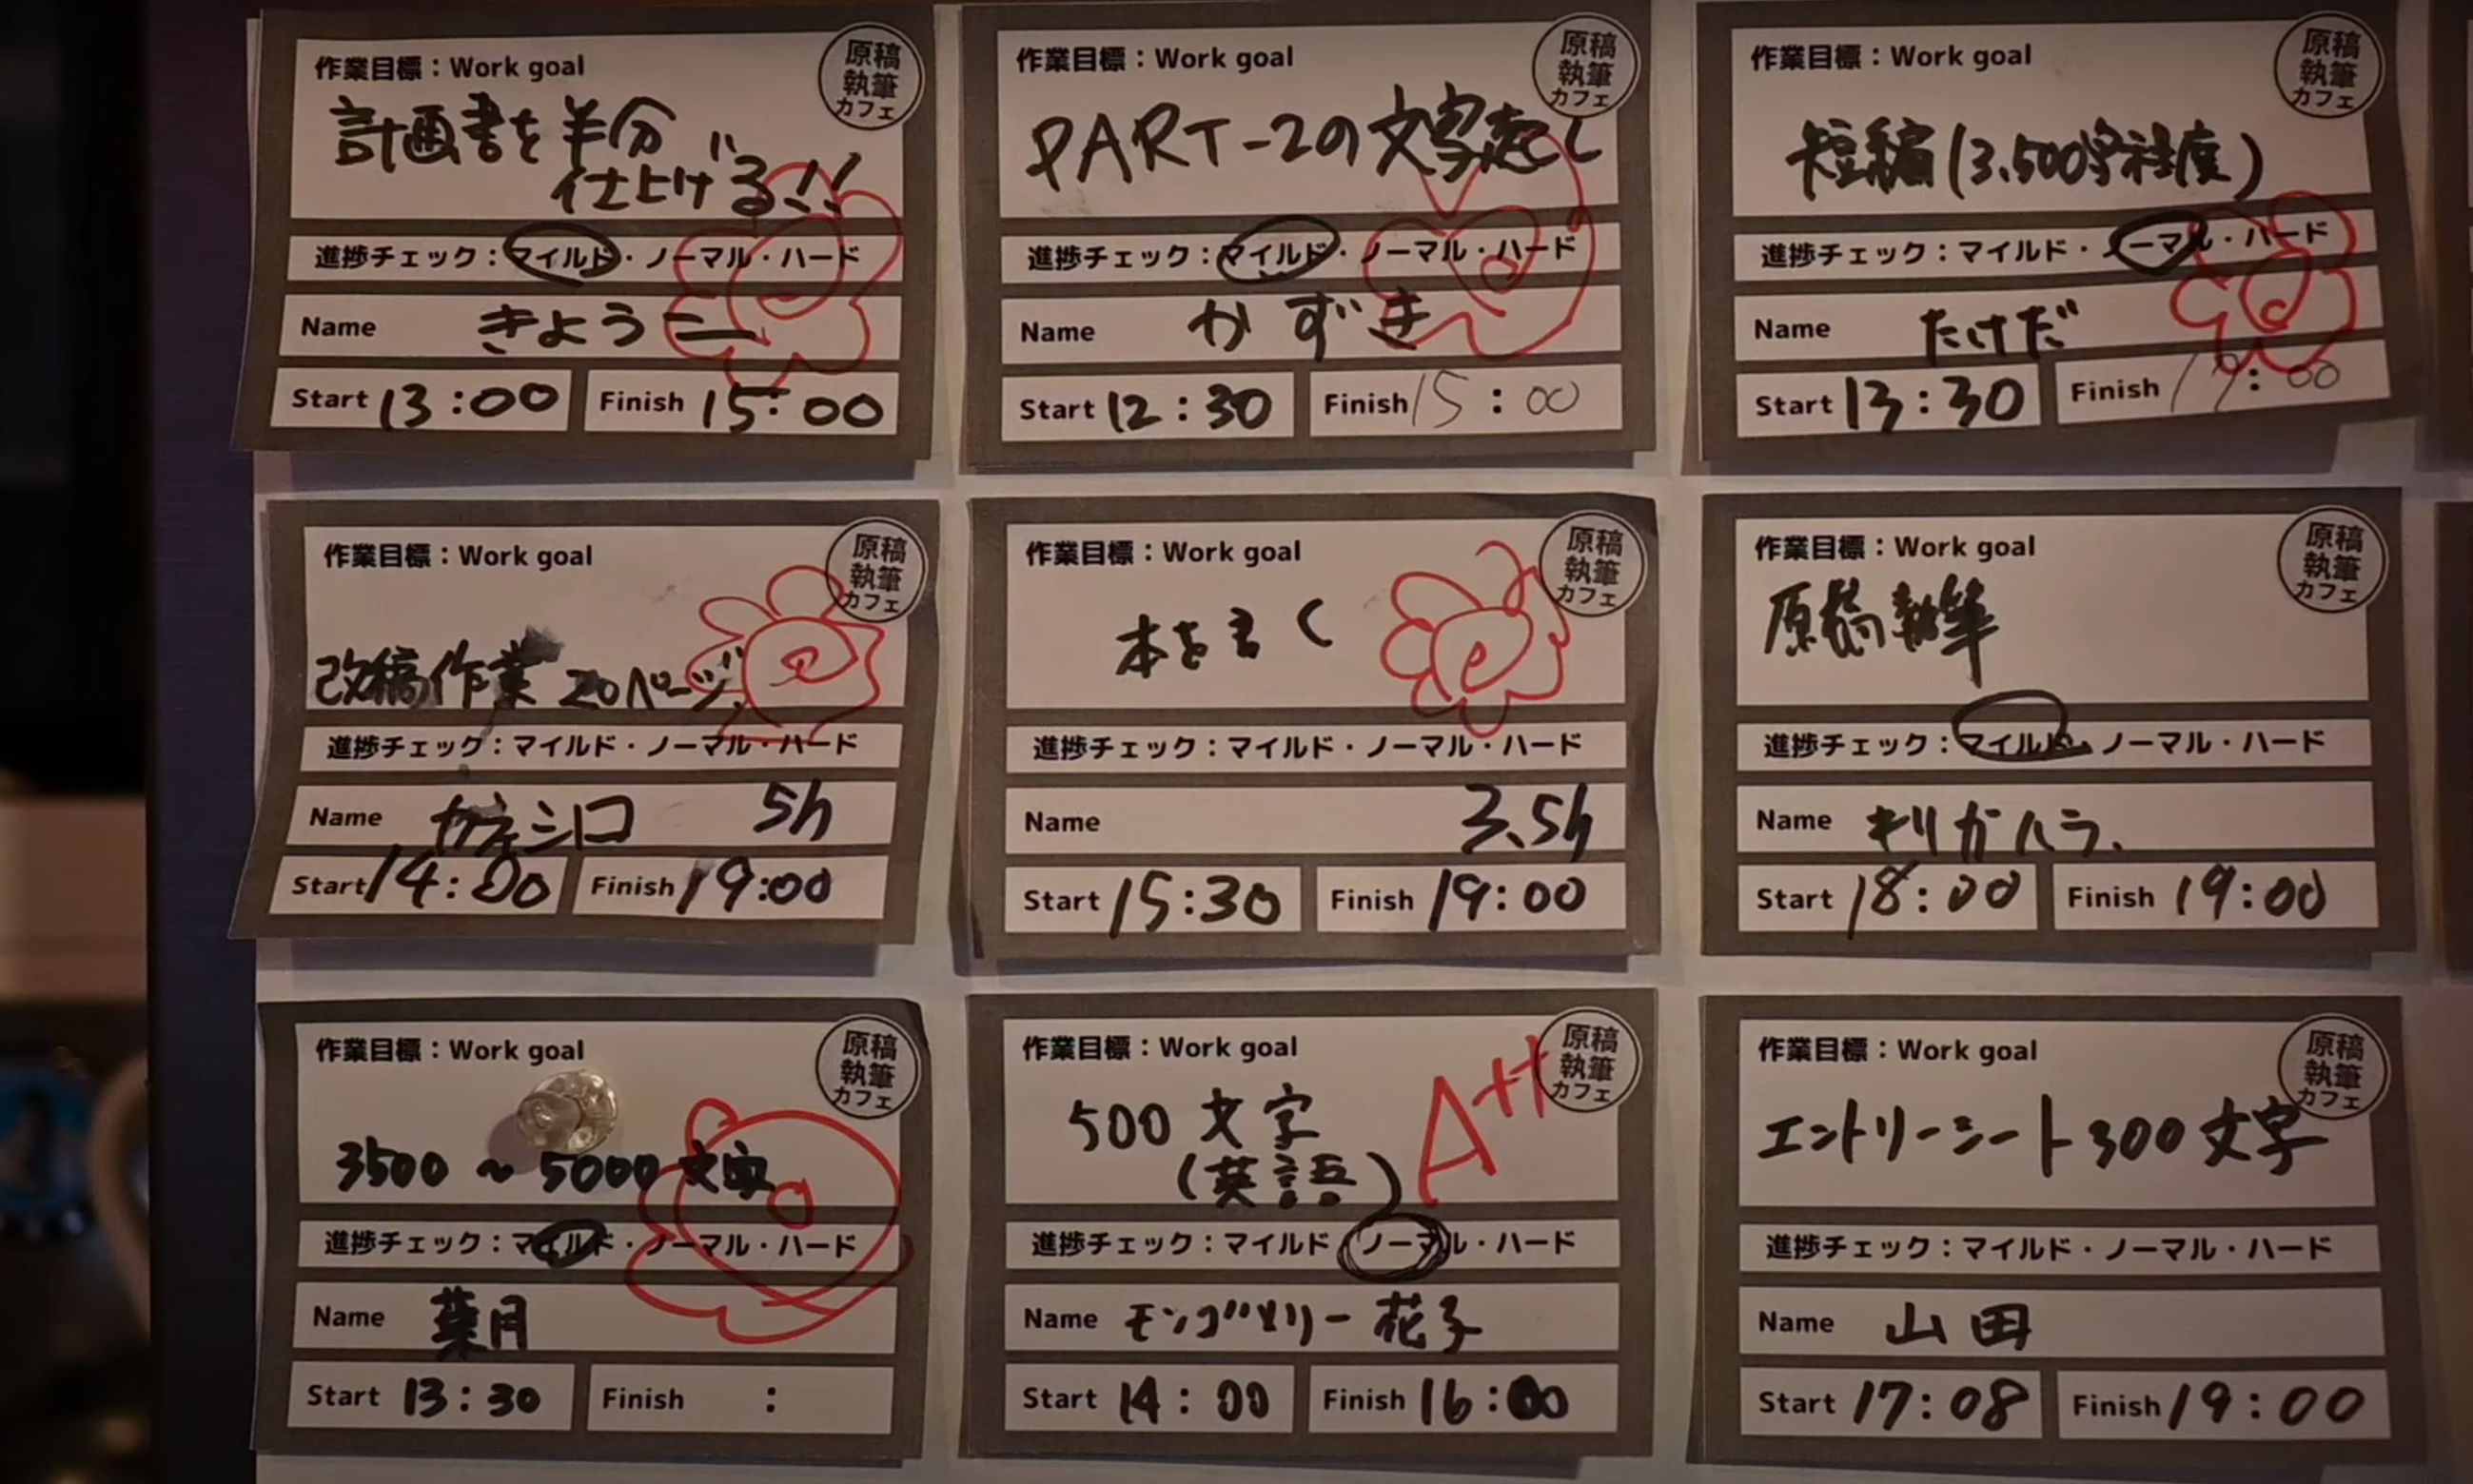 作業目標：Work goal
原稿
執筆
カフェ
計画書を半分
仕上げる!!
進捗チェック：マイルド・ノーマル・ハード
Name きょうこ
Start 13:00 Finish 15:00
作業目標：Work goal
原稿
執筆
カフェ
PART-2の文字起し
進捗チェック：マイルド・ノーマル・ハード
Name かずき
Start 12:30 Finish 15:00
作業目標：Work goal
原稿
執筆
カフェ
短編(3,500字程度)
進捗チェック：マイルド・ノーマル・ハード
Name たけだ
Start 13:30 Finish :00
作業目標：Work goal
原稿
執筆
カフェ
改稿作業 20ページ
進捗チェック：マイルド・ノーマル・ハード
Name カネシロ 5h
Start 14:00 Finish 19:00
作業目標：Work goal
原稿
執筆
カフェ
本を書く
進捗チェック：マイルド・ノーマル・ハード
Name 3.5h
Start 15:30 Finish 19:00
作業目標：Work goal
原稿
執筆
カフェ
原稿執筆
進捗チェック：マイルド・ノーマル・ハード
Name キリガハラ.
Start 18:00 Finish 19:00
作業目標：Work goal
原稿
執筆
カフェ
3500～5000文字
進捗チェック：マイルド・ノーマル・ハード
Name 葉月
Start 13:30 Finish :
作業目標：Work goal
原稿
執筆
カフェ
500文字
(英語)
A++
進捗チェック：マイルド・ノーマル・ハード
Name モンゴメリー花子
Start 14:00 Finish 16:00
作業目標：Work goal
原稿
執筆
カフェ
エントリーシート300文字
進捗チェック：マイルド・ノーマル・ハード
Name 山田
Start 17:08 Finish 19:00